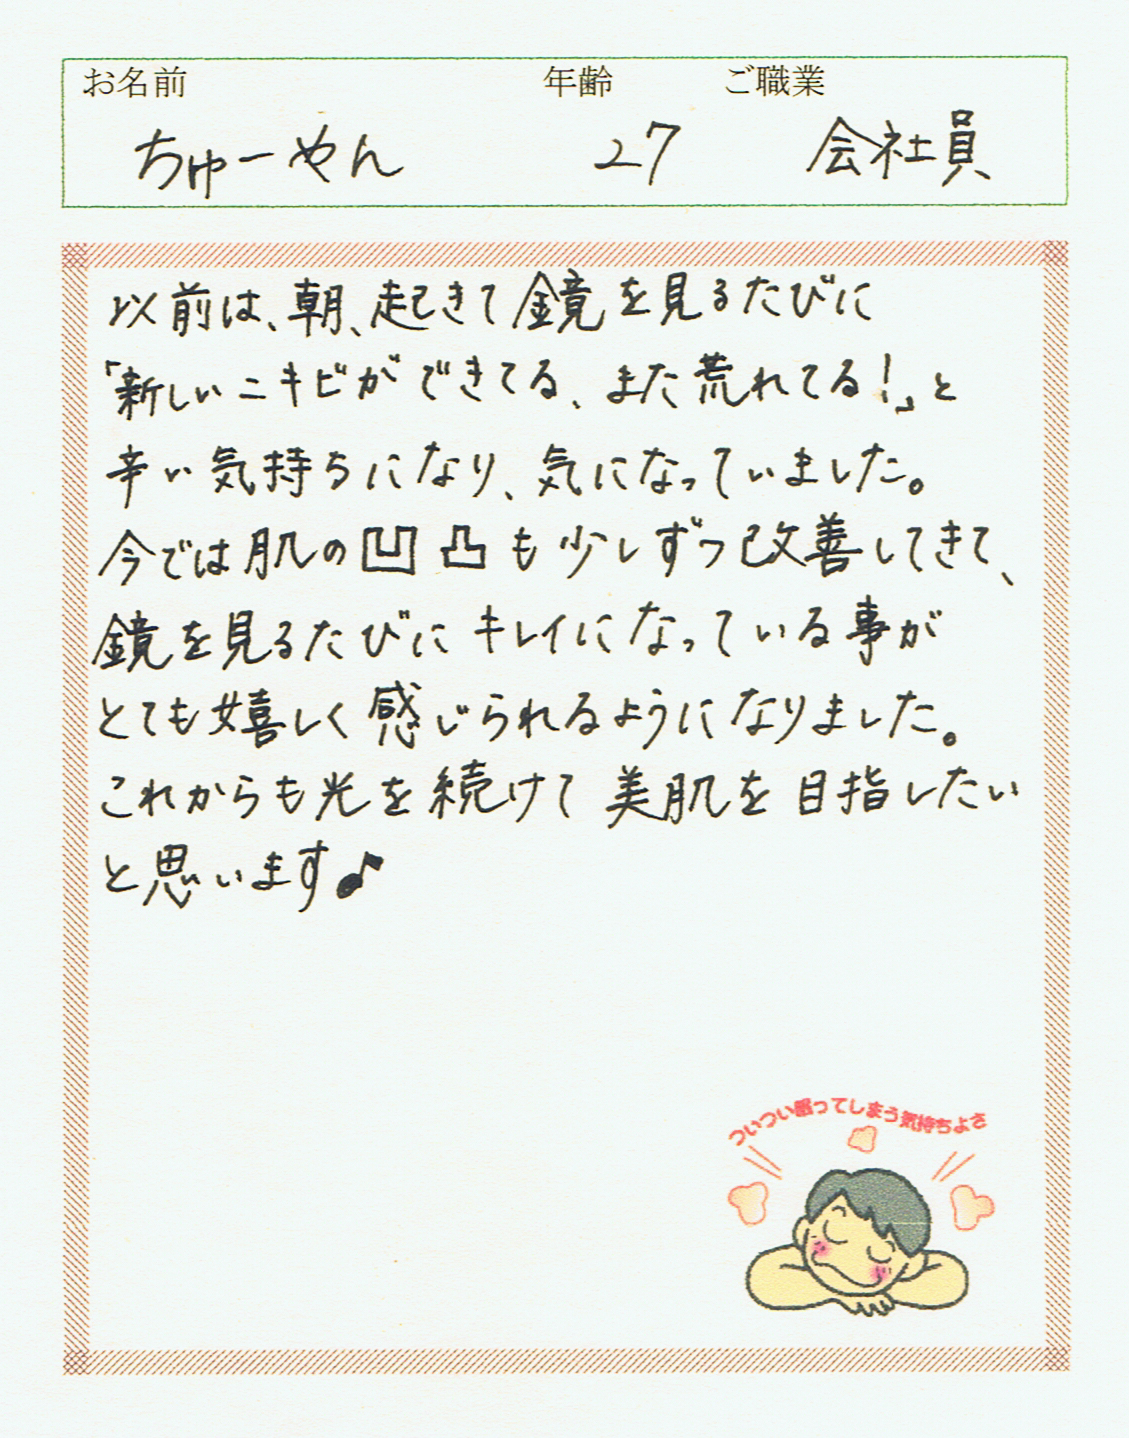 お名前 年齢 ご職業
ちゅーやん 27 会社員
以前は、朝、起きて鏡を見るたびに
「新しいニキビができてる、また荒れてる!」と
辛い気持ちになり、気になっていました。
今では肌の凹凸も少しずつ改善してきて、
鏡を見るたびにキレイになっている事が
とても嬉しく感じられるようになりました。
これからも光を続けて美肌を目指したい
と思います♪
ついつい眠ってしまう気持ちよさ